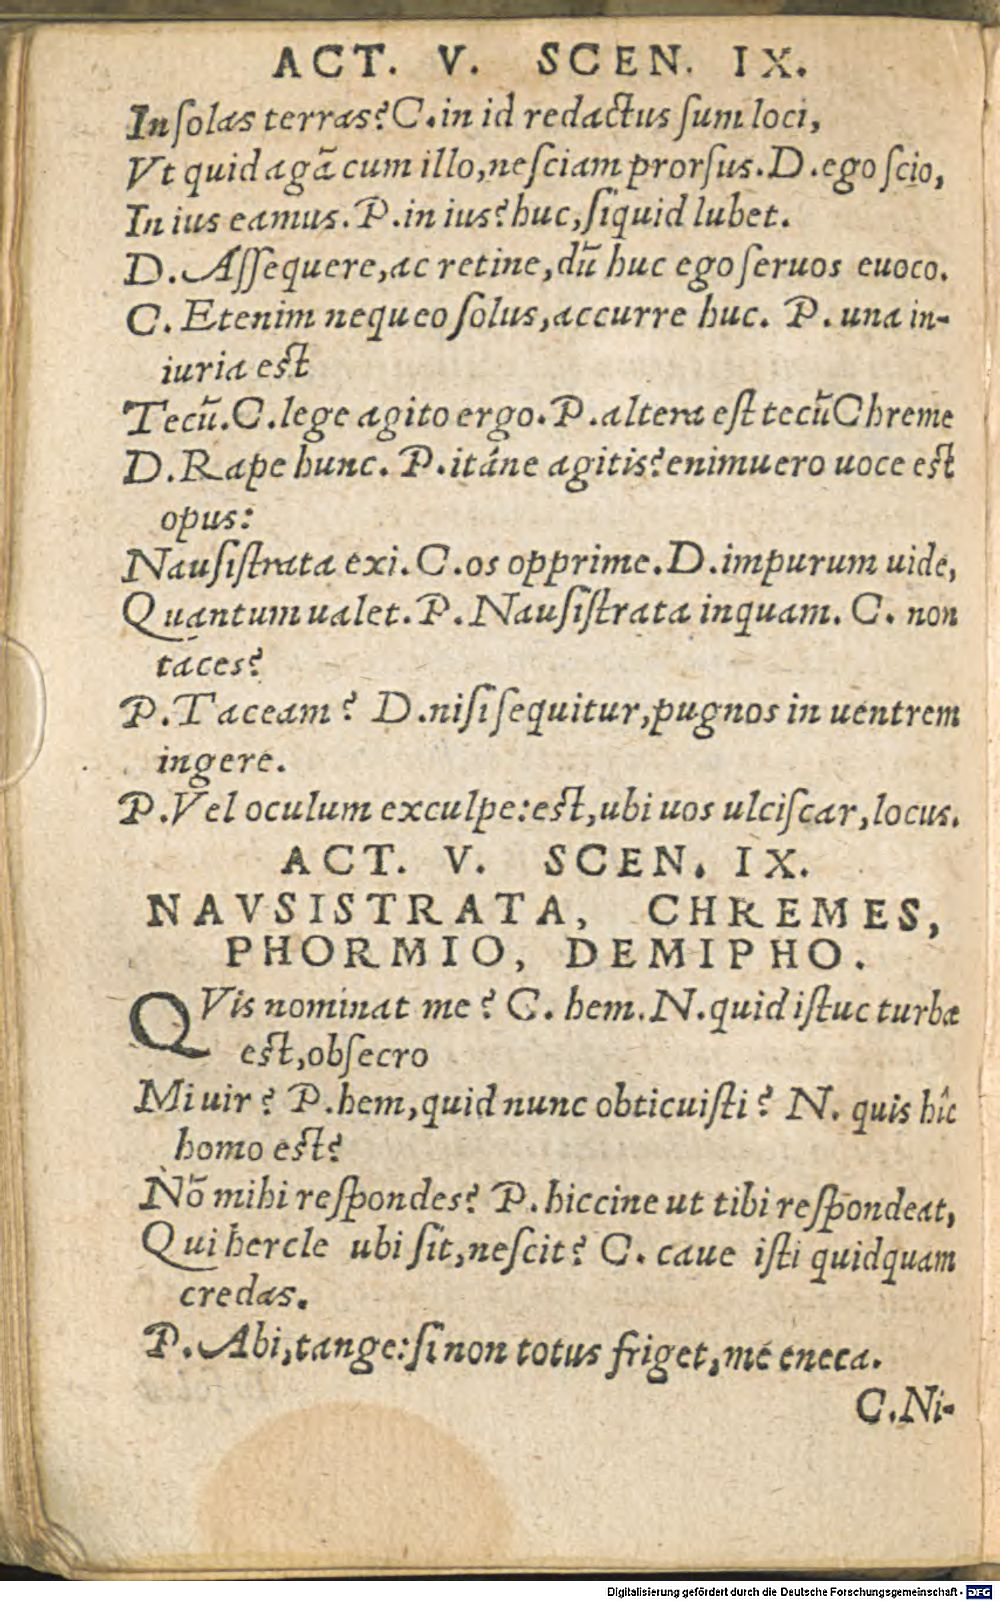 ACT. V. SCEN. IX.
In solas terras? C. in id redactus sum loci,
Vt quid agã cum illo, nesciam prorsus. D. ego scio,
In ius eamus. P. in ius? huc, siquid lubet.
D. Assequere, ac retine, dũ huc ego seruos euoco.
C. Etenim nequeo solus, accurre huc. P. una in-
iuria est
Tecũ. C. lege agito ergo. P. altera est tecũ Chreme
D. Rape hunc. P. itáne agitis? enimuero uoce est
opus:
Nausistrata exi. C. os opprime. D. impurum uide,
Quantum ualet. P. Nausistrata inquam. C. non
taces?
P. Taceam? D. nisi sequitur, pugnos in uentrem
ingere.
P. Vel oculum exculpe: est, ubi uos ulciscar, locus.
ACT. V. SCEN. IX.
NAVSISTRATA, CHREMES,
PHORMIO, DEMIPHO.
QVis nominat me? C. hem. N. quid istuc turbæ
est, obsecro
Mi uir? P. hem, quid nunc obticuisti? N. quis hîc
homo est?
Nõ mihi respondes? P. hiccine ut tibi respondeat,
Qui hercle ubi sit, nescit? C. caue isti quidquam
credas.
P. Abi, tange: si non totus friget, me eneca.
C. Ni-
Digitalisierung gefördert durch die Deutsche Forschungsgemeinschaft - DFG